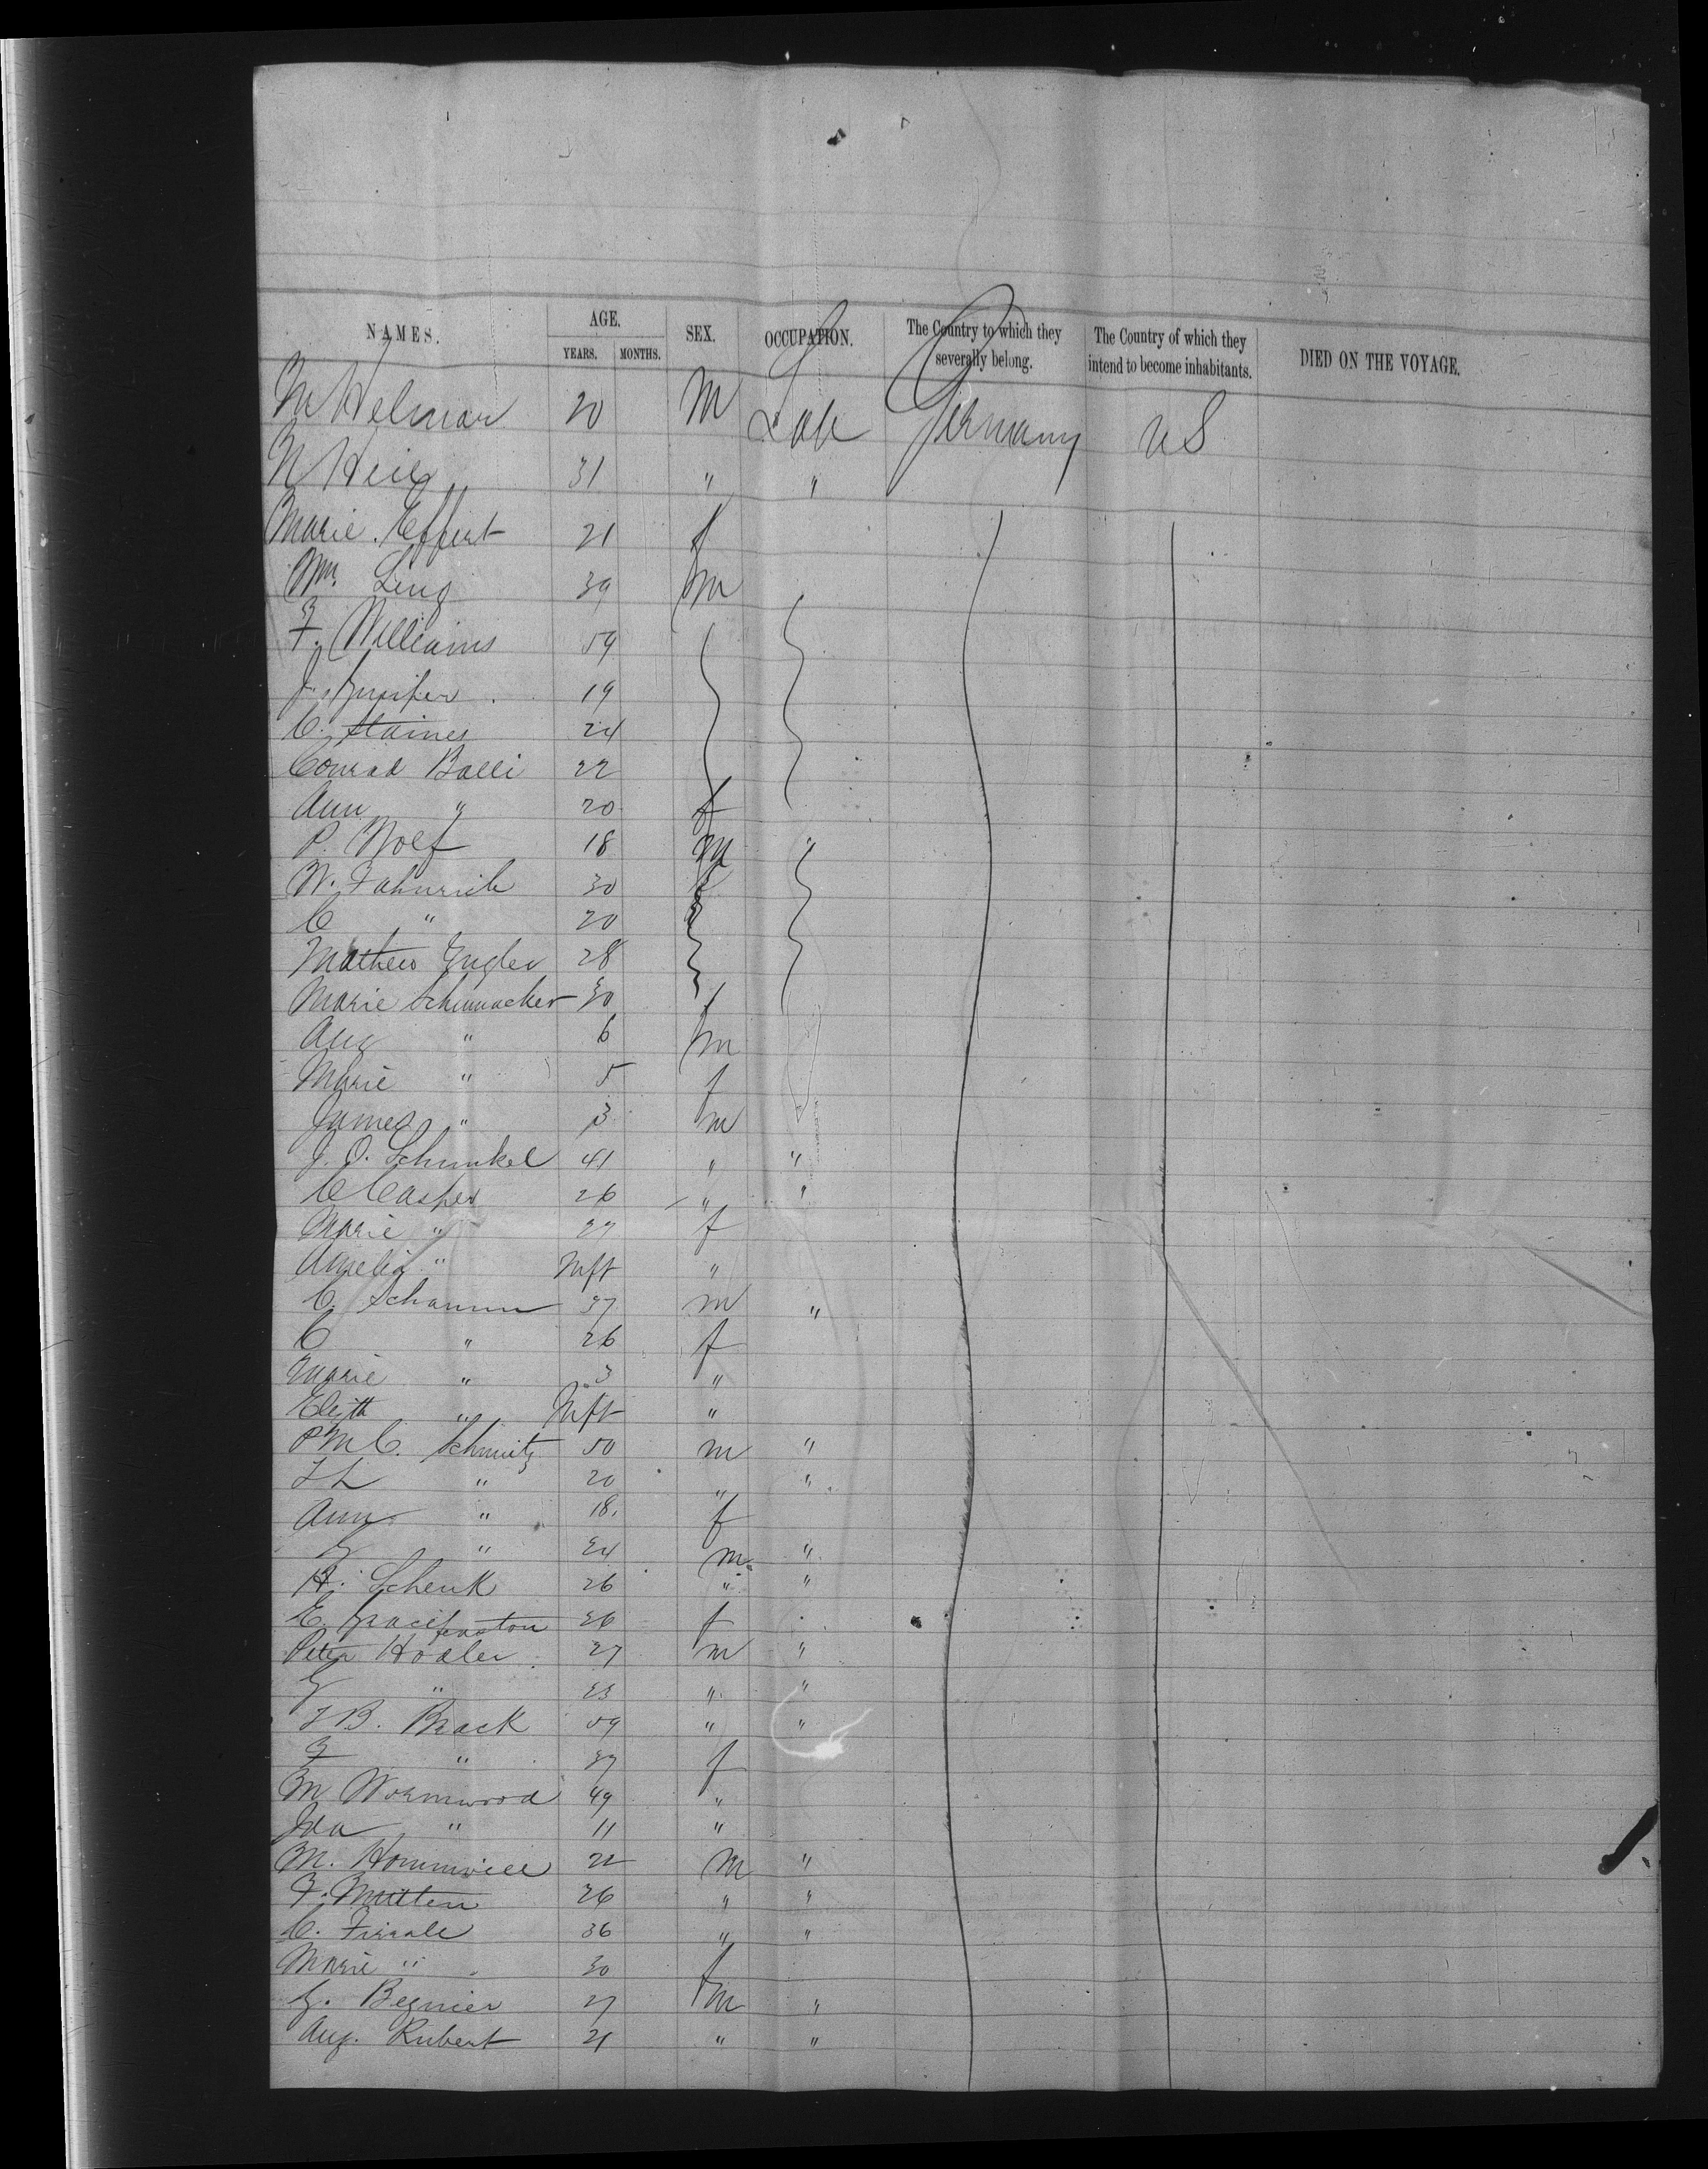 NAMES. AGE. SEX. OCCUPATION. The Country to which they severally belong. The Country of which they intend to become inhabitants. DIED ON THE VOYAGE.
YEARS. MONTHS.
M Helmar 20 M Lab Germany US
N Heil 31 " "
Marie Effert 21 f
Wm. Ling 39 m
F. Williams 59
J. 19
C. Staines 24
Conrad Balli 22
Ann " 20 f
P. Wolf 18 m "
W. Fahnrich 30
C " 20
Mathew Engler 28
Marie Schumacker 30 f
Aug " 6 m
Marie " 5 f
James " 3 m
J. O. Schunkel 41 " "
C Casper 26 " "
Marie " 27 f
Amelia " Inft "
C. Schamm 37 m "
C " 26 f
Marie " 3 "
Elizth " Inft "
P M C. Schmitz 50 m "
F L " 20 " "
Ann " 18. f
G " 24 m "
H. Schenk 26 " "
E. 26 f
Peter Hodler 27 m "
G " 23 " "
F B. Brack 59 " "
F " 37 f
M Wormwood 49 "
Ida " 11 "
M. Hommwill 22 m "
F. Mutten 26 " "
C. 36 " "
Marie " 30 f
G. Begnier 27 m "
Aug. Rubert 21 " "